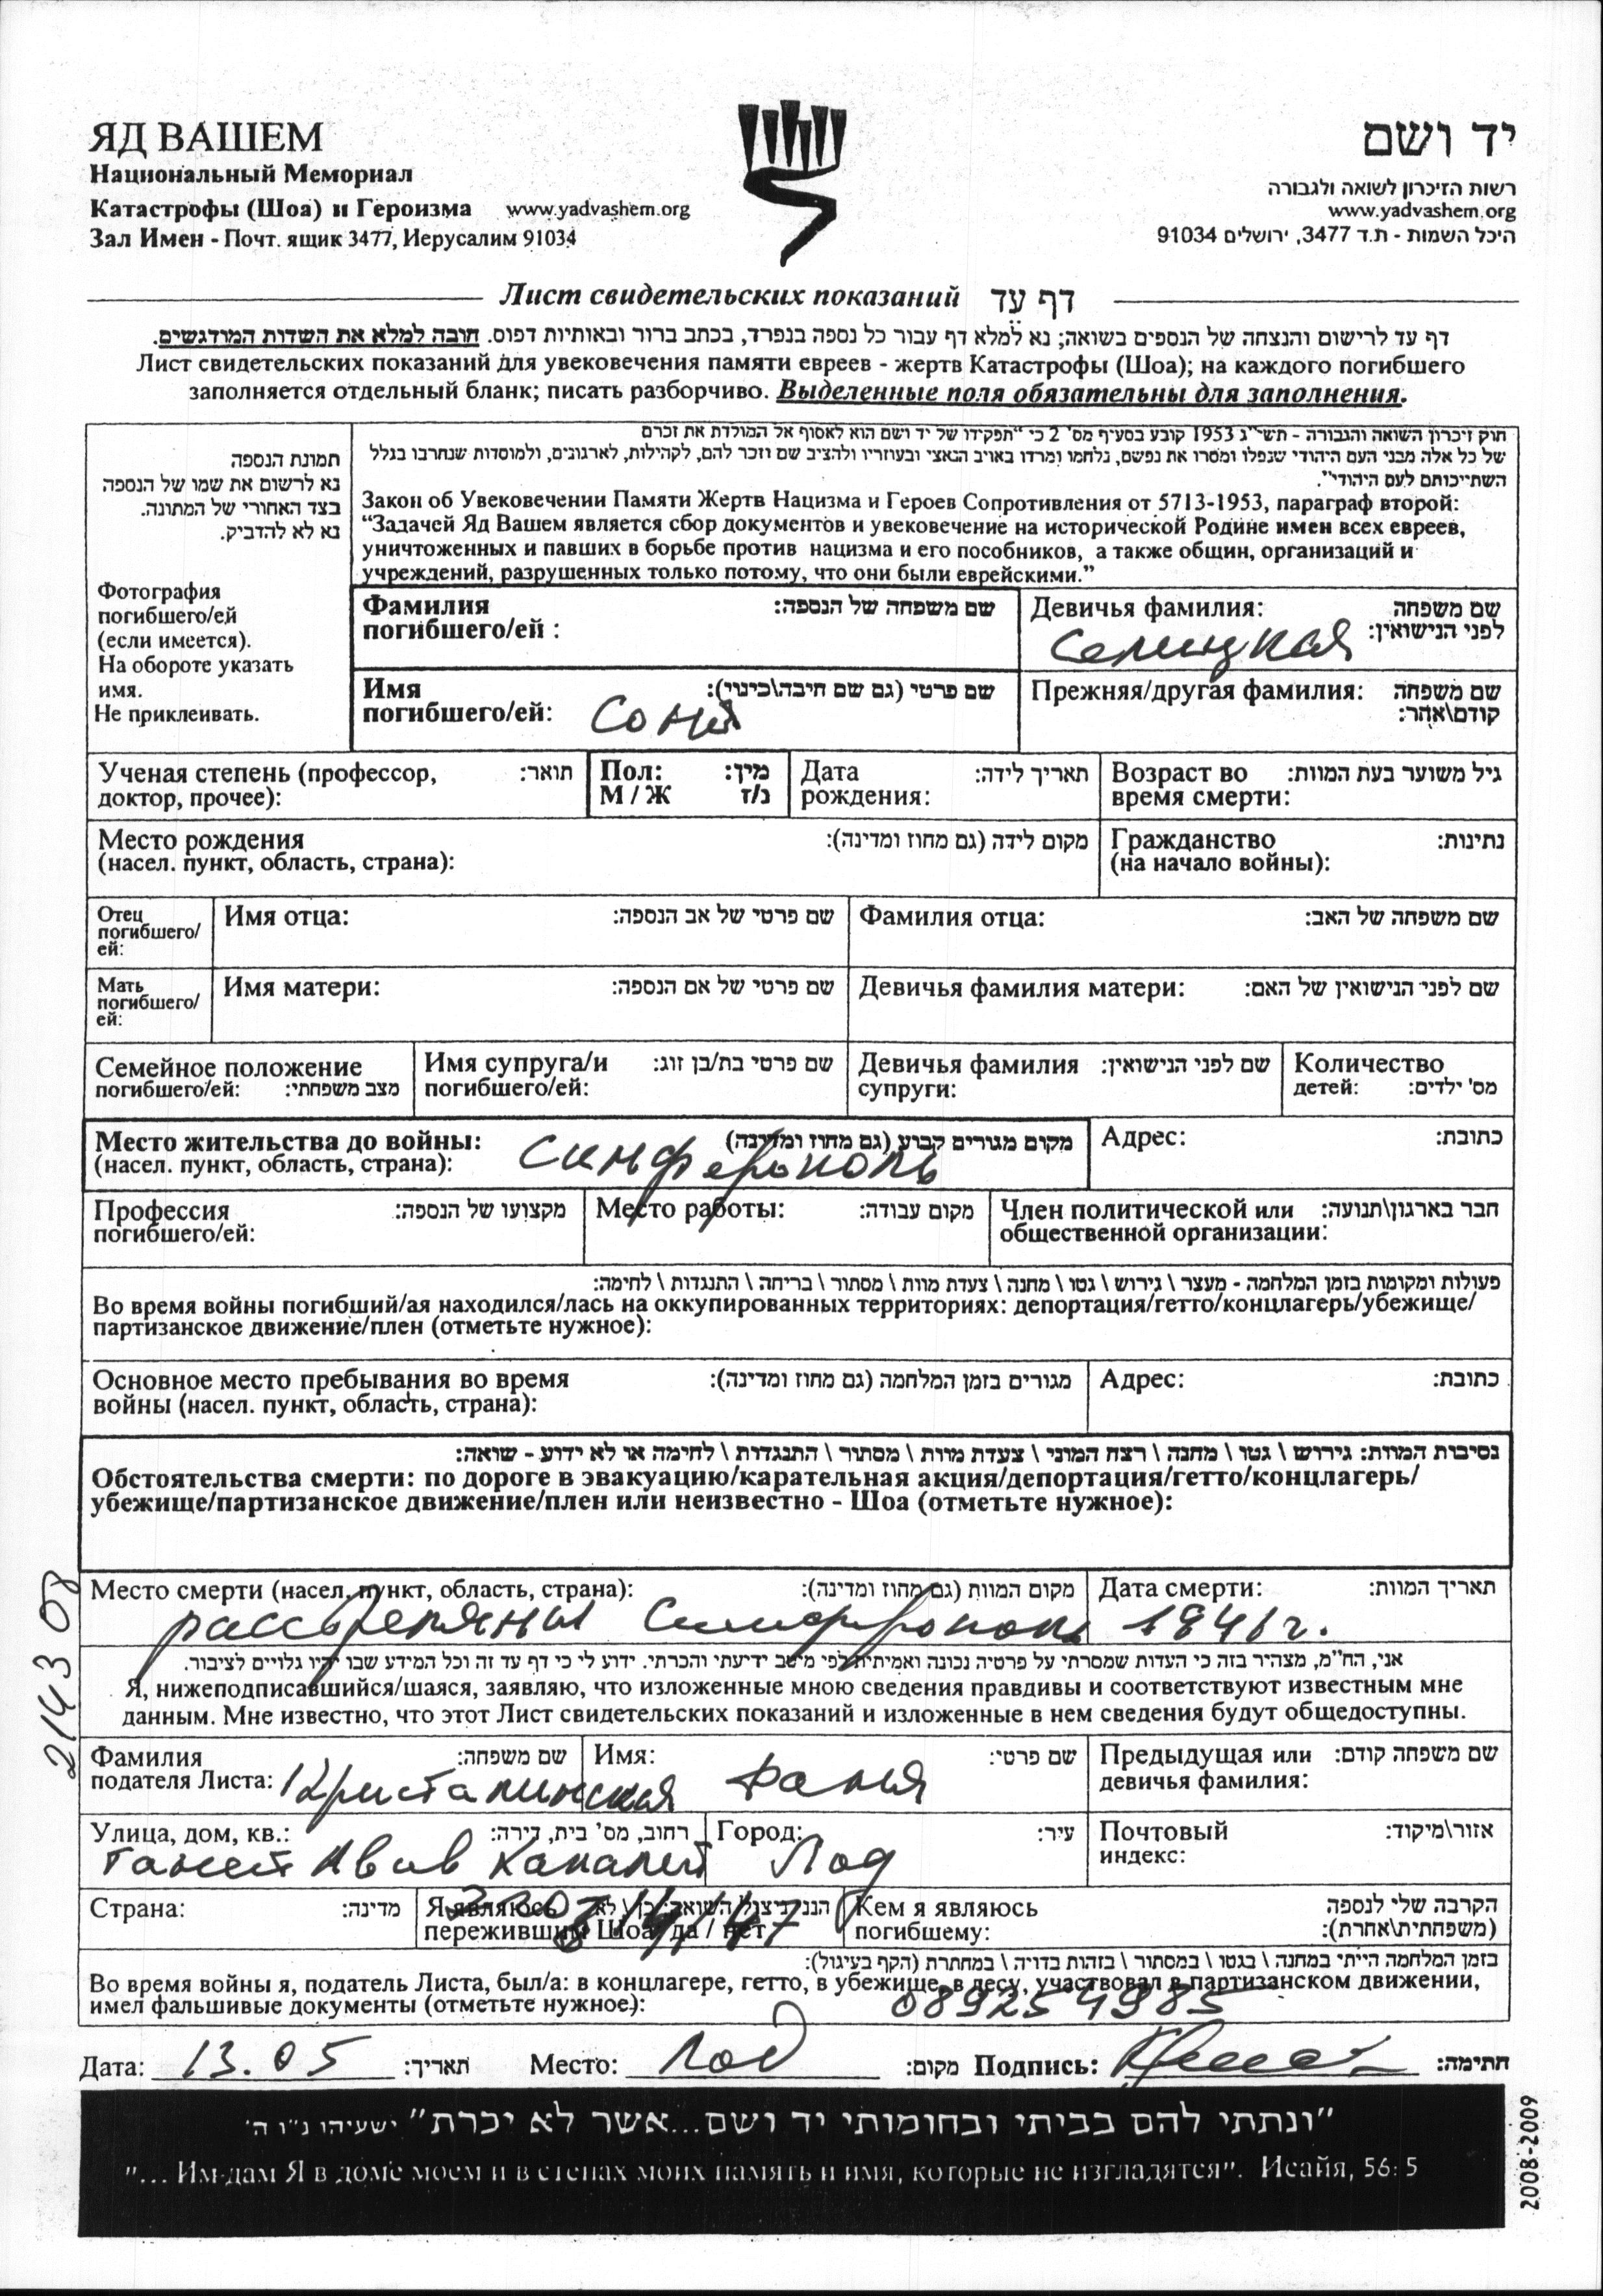 ЯД ВАШЕМ
Национальный Мемориал
Катастрофы (Шоа) и Героизма www.yadvashem.org
Зал Имен - Почт. ящик 3477, Иерусалим 91034
יד ושם
רשות הזיכרון לשואה ולגבורה
www.yadvashem.org
היכל השמות - ת.ד 3477, ירושלים 91034
Лист свидетельских показаний דף עד
דף עד לרישום והנצחה של הנספים בשואה; נא למלא דף עבור כל נספה בנפרד, בכתב ברור ובאותיות דפוס. חובה למלא את השדות המודגשים.
Лист свидетельских показаний для увековечения памяти евреев - жертв Катастрофы (Шоа); на каждого погибшего
заполняется отдельный бланк; писать разборчиво. Выделенные поля обязательны для заполнения.
תמונת הנספה
נא לרשום את שמו של הנספה
בצד האחורי של התמונה.
נא לא להדביק.
Фотография
погибшего/ей
(если имеется).
На обороте указать
имя.
Не приклеивать.
חוק זיכרון השואה והגבורה - תשי"ג 1953 קובע בסעיף מס' 2 כי "תפקידו של יד ושם הוא לאסוף אל המולדת את זכרם
של כל אלה מבני העם היהודי שנפלו ומסרו את נפשם, נלחמו ומרדו באויב הנאצי ובעוזריו ולהציב שם וזכר להם, לקהילות, לארגונים, ולמוסדות שנחרבו בגלל
השתייכותם לעם היהודי".
Закон об Увековечении Памяти Жертв Нацизма и Героев Сопротивления от 5713-1953, параграф второй:
“Задачей Яд Вашем является сбор документов и увековечение на исторической Родине имен всех евреев,
уничтоженных и павших в борьбе против нацизма и его пособников, а также общин, организаций и
учреждений, разрушенных только потому, что они были еврейскими.”
Фамилия שם משפחה של הנספה:
погибшего/ей :
Девичья фамилия: שם משפחה
לפני הנישואין:
Селицкая
Имя שם פרטי (גם שם חיבה\כינוי):
погибшего/ей: Соня
Прежняя/другая фамилия: שם משפחה
קודם\אחר:
Ученая степень (профессор, תואר:
доктор, прочее):
Пол: מין:
М / Ж ז/נ
Дата תאריך לידה:
рождения:
Возраст во גיל משוער בעת המוות:
время смерти:
Место рождения מקום לידה (גם מחוז ומדינה):
(насел. пункт, область, страна):
Гражданство נתינות:
(на начало войны):
Отец
погибшего/
ей:
Имя отца: שם פרטי של אב הנספה:
Фамилия отца: שם משפחה של האב:
Мать
погибшего/
ей:
Имя матери: שם פרטי של אם הנספה:
Девичья фамилия матери: שם לפני הנישואין של האם:
Семейное положение
погибшего/ей: מצב משפחתי:
Имя супруга/и שם פרטי בת/בן זוג:
погибшего/ей:
Девичья фамилия שם לפני הנישואין:
супруги:
Количество
детей: מס' ילדים:
Место жительства до войны: מקום מגורים קבוע (גם מחוז ומדינה)
(насел. пункт, область, страна): Симферополь
Адрес: כתובת:
Профессия מקצועו של הנספה:
погибшего/ей:
Место работы: מקום עבודה:
Член политической или חבר בארגון\תנועה:
общественной организации:
פעולות ומקומות בזמן המלחמה - מעצר \ גירוש \ גטו \ מחנה \ צעדת מוות \ מסתור \ בריחה \ התנגדות \ לחימה:
Во время войны погибший/ая находился/лась на оккупированных территориях: депортация/гетто/концлагерь/убежище/
партизанское движение/плен (отметьте нужное):
Основное место пребывания во время מגורים בזמן המלחמה (גם מחוז ומדינה):
войны (насел. пункт, область, страна):
Адрес: כתובת:
נסיבות המוות: גירוש \ גטו \ מחנה \ רצח המוני \ צעדת מוות \ מסתור \ התנגדות \ לחימה או לא ידוע - שואה:
Обстоятельства смерти: по дороге в эвакуацию/карательная акция/депортация/гетто/концлагерь/
убежище/партизанское движение/плен или неизвестно - Шоа (отметьте нужное):
Место смерти (насел. пункт, область, страна): מקום המוות (גם מחוז ומדינה):
Дата смерти: תאריך המוות:
расстреляны Симферополь 1941г.
אני, הח"מ, מצהיר בזה כי העדות שמסרתי על פרטיה נכונה ואמיתית לפי מיטב ידיעתי והכרתי. ידוע לי כי דף עד זה וכל המידע שבו יהיו גלויים לציבור.
Я, нижеподписавшийся/шаяся, заявляю, что изложенные мною сведения правдивы и соответствуют известным мне
данным. Мне известно, что этот Лист свидетельских показаний и изложенные в нем сведения будут общедоступны.
Фамилия שם משפחה:
подателя Листа: Кристалинская
Имя: שם פרטי:
Фаня
Предыдущая или שם משפחה קודם:
девичья фамилия:
Улица, дом, кв.: רחוב, מס' בית, דירה:
Ганей Авив
Город: עיר:
Лод
Почтовый אזור\מיקוד:
индекс:
Страна: מדינה:
Я являюсь הנני ניצול השואה: כן \ לא
пережившим Шоа: да / нет
Кем я являюсь הקרבה שלי לנספה
погибшему: (משפחתית\אחרת):
בזמן המלחמה הייתי במחנה \ בגטו \ במסתור \ בזהות בדויה \ במחתרת (הקף בעיגול):
Во время войны я, податель Листа, был/а: в концлагере, гетто, в убежище, в лесу, участвовал в партизанском движении,
имел фальшивые документы (отметьте нужное): 089254985
Дата: 13.05 תאריך: Место: Лод מקום: Подпись: חתימה:
"ונתתי להם בביתי ובחומותי יד ושם...אשר לא יכרת" ישעיהו נ"ו ה'
"... Им дам Я в доме моем и в стенах моих память и имя, которые не изгладятся". Исайя, 56: 5
2143 08
2008-2009